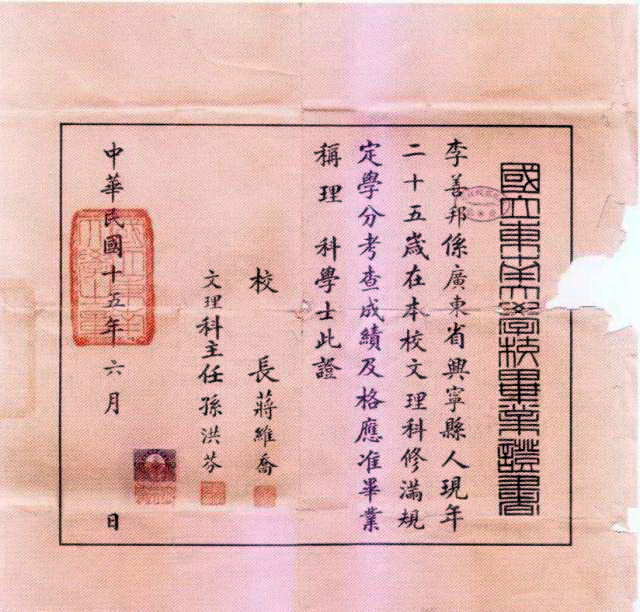 國立東南大學校畢業證書
李善邦係廣東省興寧縣人現年
二十五歲在本校文理科修滿規
定學分考查成績及格應准畢業
稱理 科學士此證
校 長蔣維喬
文理科主任孫洪芬
中華民國十五年六月 日